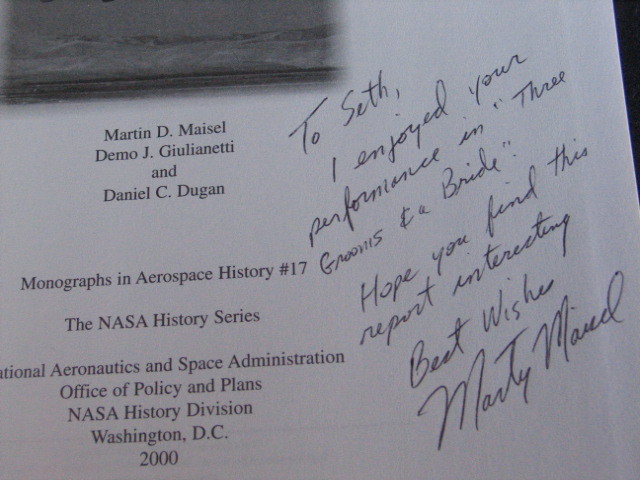 Martin D. Maisel
Demo J. Giulianetti
and
Daniel C. Dugan
Monographs in Aerospace History #17
The NASA History Series
ational Aeronautics and Space Administration
Office of Policy and Plans
NASA History Division
Washington, D.C.
2000
To Seth,
I enjoyed your
performance in "Three
Grooms & a Bride".
Hope you find this
report interesting
Best Wishes
Marty Maisel